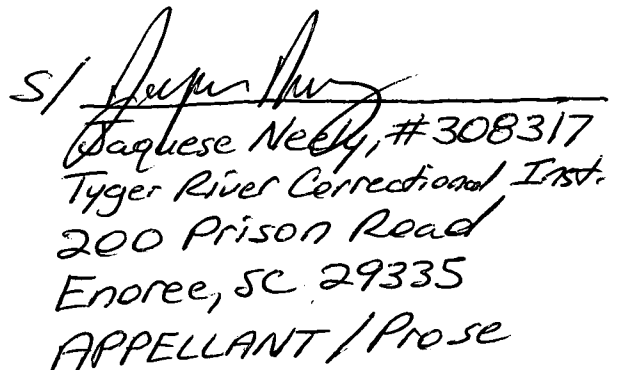 S/
Jaquese Neely, #308317
Tyger River Correctional Inst.
200 Prison Road
Enoree, SC 29335
APPELLANT / Pro se